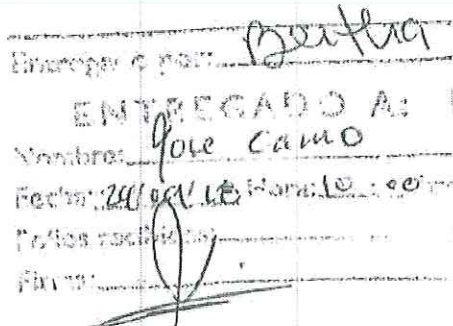 Entregar a por: Bertha
ENTREGADO A:
Nombre: Jose Camo
Fecha: Hora: 10:00
Folios recibidos:
Firma: